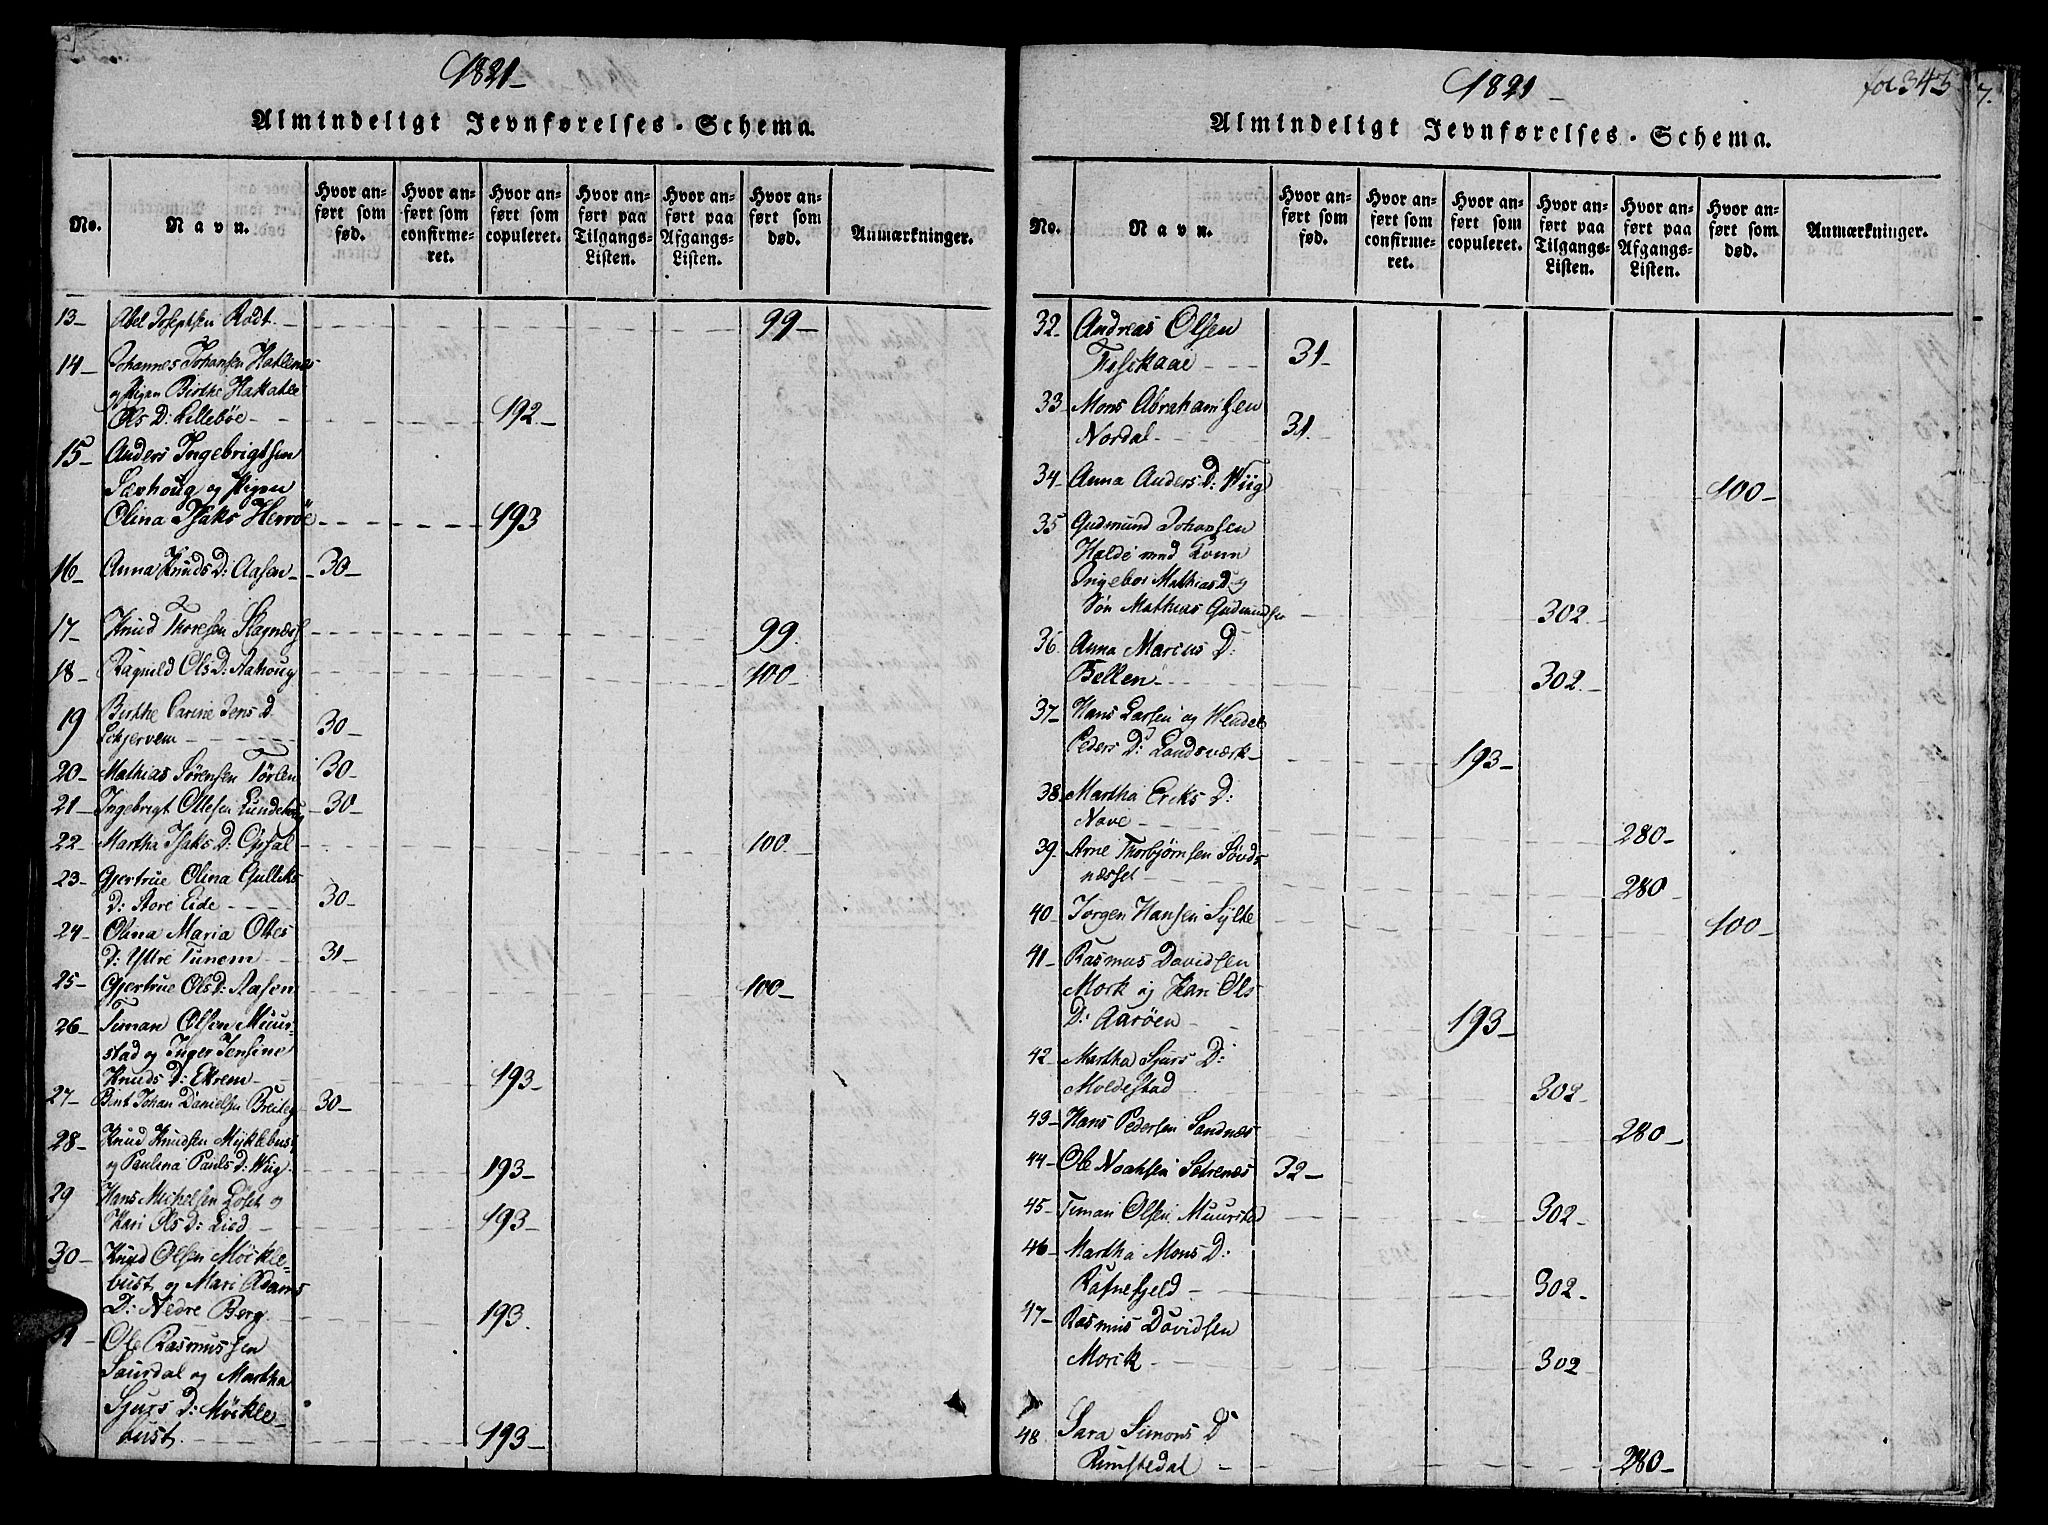 1821
Almindeligt Jevnførelses-Schema.
No. Navn. Hvor anført som fød. Hvor anført som confirmeret. Hvor anført som copuleret. Hvor anført paa Tilgangs-Listen. Hvor anført paa Afgangs-Listen. Hvor anført som død. Anmærkninger.
13 Abel Josephsen Rødt 99
14 Johannes Johansen Hatlenes
og Pigen Birthe
Ols D: Lillebøe 192
15 Anders Ingebrigtsen
og Pigen
Olina Isaks Herröe 193
16 Anna Knuds D: Aasen 30
17 Knud Thoresen 99
18 Ragnild Ols D: Aahoug 100
19 Birthe Carine Jens D
Schjervem 30
20 Mathias Sørensen Tørlen 30
21 Ingebrigt Ollesen Lundehoug 30
22 Martha Isaks D: Opsal 100
23 Gjertrue Olina Gulliks
D: Store Eide 30
24 Olina Maria Olles
D: Yttre Tunem 31
25 Gjertrue Ols D: Aasen 100
26 Timan Olsen Muur-
stad og Inger Jensine
Knuds D: Ekrem 193
27 Bent Johan Danielsen 30
28 Knud Knudsen Myklebust
og Paulina Pauls D: Wiig 193
29 Hans Michelsen Löset og
Kari Ols D: Lied 193
30 Knud Olsen Möckle-
bust og Mari Adams
D: Nedre Berg 193
Ole Rasmussen
Saurdal og Martha
Sjurs D: Möckle-
bust 193
1821 fol 343
Almindeligt Jevnførelses-Schema.
No. Navn. Hvor anført som fød. Hvor anført som confirmeret. Hvor anført som copuleret. Hvor anført paa Tilgangs-Listen. Hvor anført paa Afgangs-Listen. Hvor anført som død. Anmærkninger.
32 Andreas Olsen
31
33 Mons Abrahamsen
Nordal 31
34 Anna Anders D: Wiig 100
35 Gudmund Johansen
Halde med Kone
Ingebor Mathias D og
Søn Mathias Gudmundsen 302
36 Anna Marcus D:
Bellen 302
37 Hans Larsen og Wendel
Peders D: Landsværk 193
38 Martha Ericks D:
Nave 280
39 Arne Thorbjørnsen Sövds
næsset 280
40 Jørgen Hansen Sylte 100
41 Rasmus Davidsen
Mork og Kari Ols
D: Aaröen 193
42 Martha Sjurs D:
Moldestad 302
43 Hans Pedersen Sandnæs 280
44 Ole Noahsen 32
45 Timan Olsen Muurstad 302
46 Martha Mons D:
Rafnefjeld 302
47 Rasmus Davidsen
Morck 302
48 Sara Simons D
Rimstedal 280